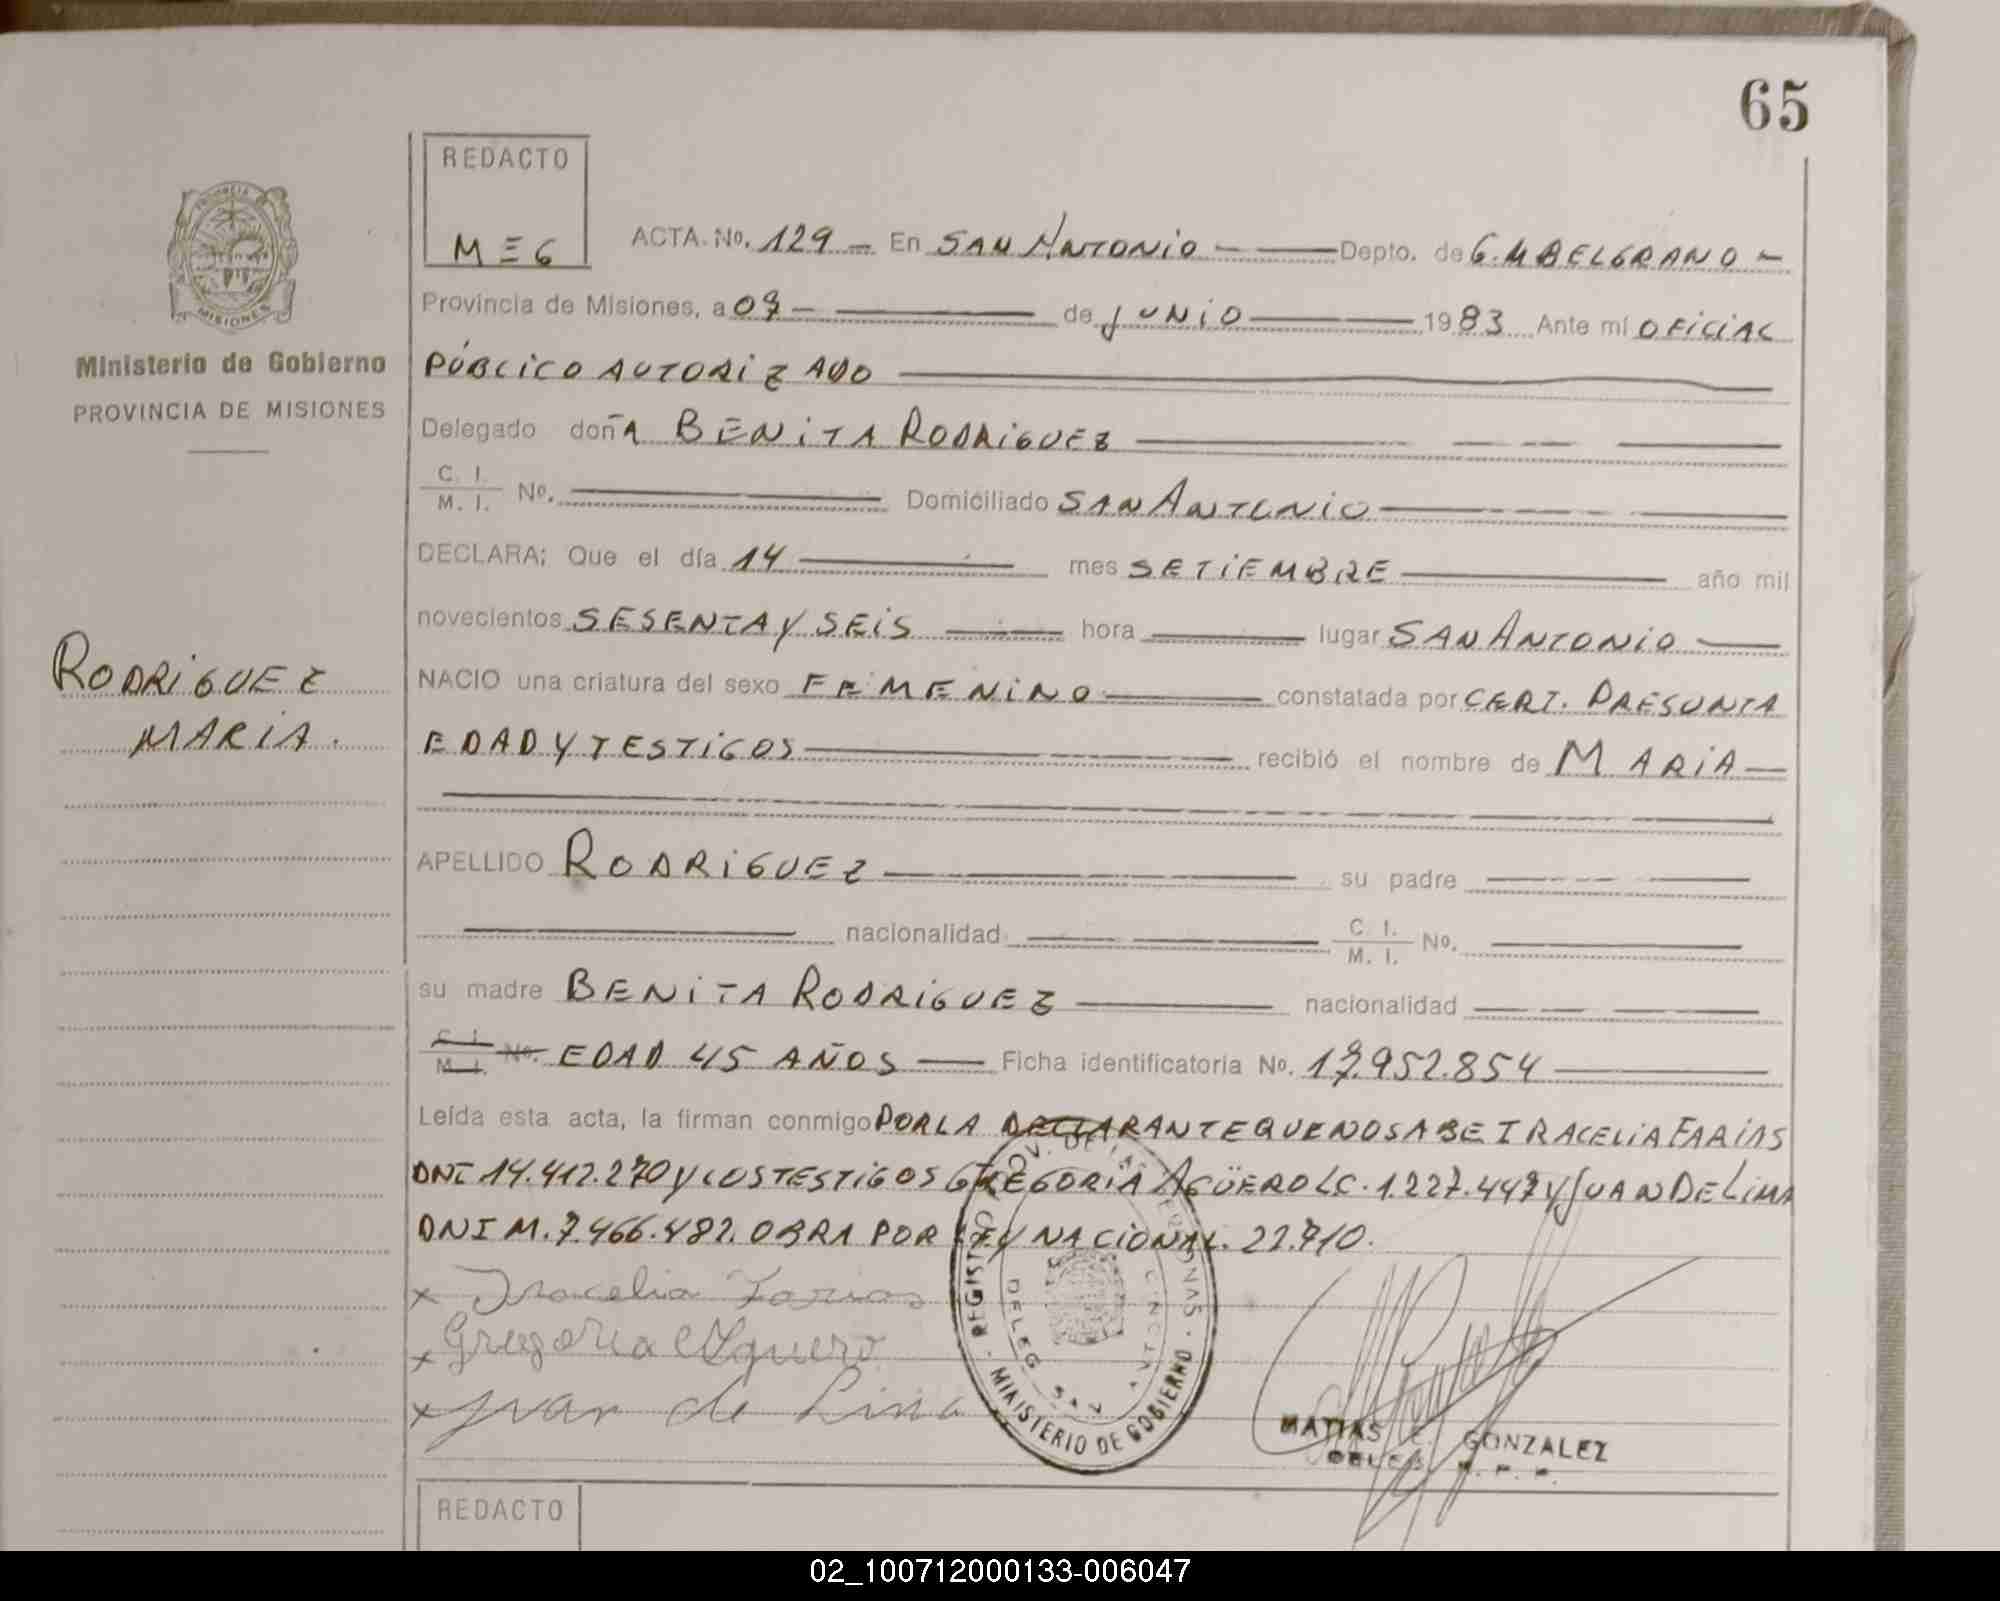 65
REDACTO
MEG
ACTA. No. 129 En SAN ANTONIO Depto. de G. M BELGRANO
Provincia de Misiones, a 07 de JUNIO 1983 Ante mí OFICIAL
Ministerio de Gobierno
PROVINCIA DE MISIONES
PÚBLICO AUTORIZADO
Delegado doñA BENITA RODRIGUEZ
C. I.
M. I. No. Domiciliado SAN ANTONIO
DECLARA; Que el día 14 mes SETIEMBRE año mil
novecientos SESENTA Y SEIS hora lugar SAN ANTONIO
RODRIGUEZ
MARIA.
NACIO una criatura del sexo FEMENINO constatada por CERT. PRESUNTA
EDAD Y TESTIGOS recibió el nombre de MARIA
APELLIDO RODRIGUEZ su padre
nacionalidad C. I.
M. I. No.
su madre BENITA RODRIGUEZ nacionalidad
C. I.
M. I. No. EDAD 45 AÑOS Ficha identificatoria No. 17.952.854
Leída esta acta, la firman conmigo POR LA DECLARANTE QUE NO SABE IRACELIA FARIAS
DNI 14.412.270 Y LOS TESTIGOS GREGORIA AGÜERO LC. 1.227.447 Y JUAN DE LIMA
DNI M. 7.466.482. OBRA POR LEY NACIONAL. 22.710.
x Iracelia Farias
x Gregoria Aguero
x Juan de Lima
REGISTRO PROV. DE LAS PERSONAS
MINISTERIO DE GOBIERNO
DELEG. SAN ANTONIO
MATIAS E. GONZALEZ
REDACTO
02_100712000133-006047